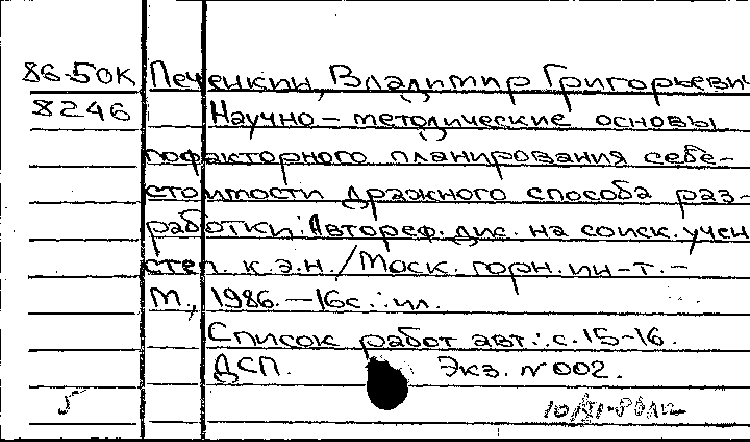 86-50К Печенкин, Владимир Григорьевич
8246 Научно-методические основы
пофакторного планирования себе-
стоимости дражного способа раз-
работки: Автореф. дис. на соиск. учен
степ. к.э.н./Моск. горн. ин-т.-
М., 1986.-16с.:ил.
Список работ авт.: с. 15-16.
ДСП. Экз. №002.